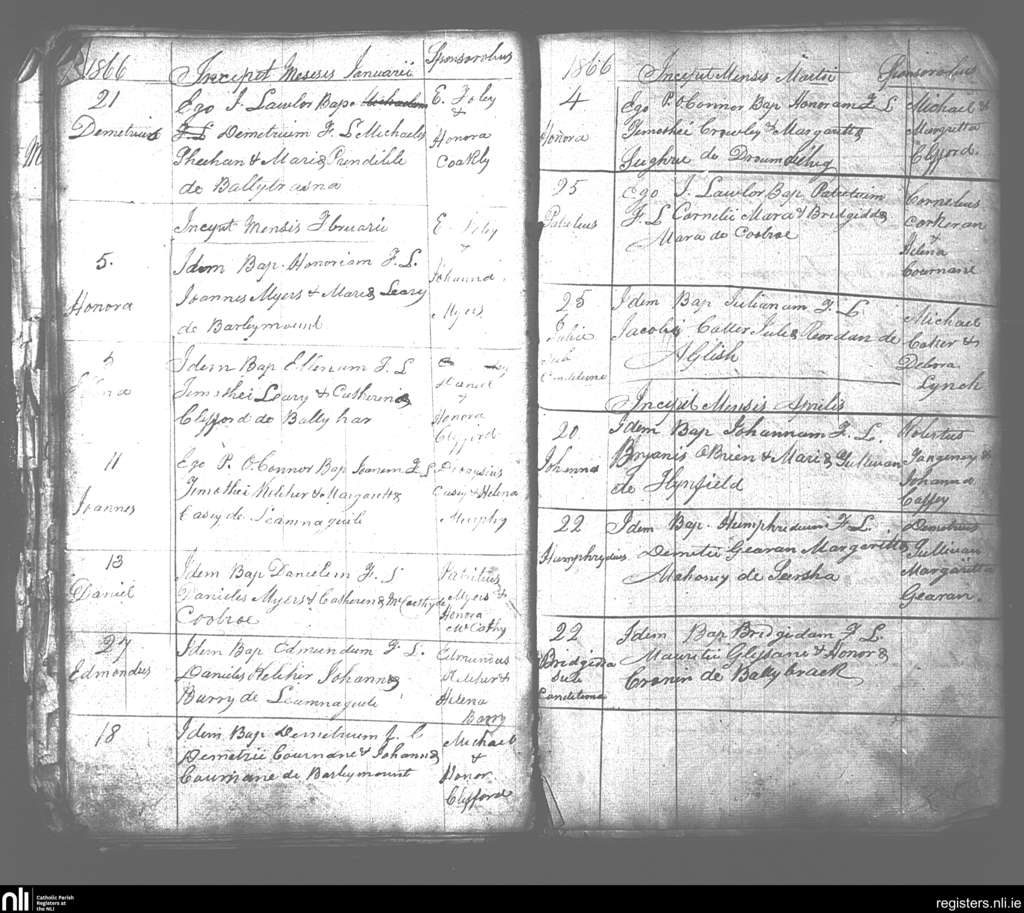 1866
Incipit Mensis Januarii
Sponsoribus
21
Demetrius
Ego J. Lawlor Bap. Michaelem
F L Demetrium F. L Michaelis
Sheehan & Maria Prendible
de Ballybrasna
E. Foley
&
Honora
Coakly
Incipit Mensis Fbruarii
5.
Honora
Idem Bap. Honoriam F. L.
Joannes Myers & Maria Leary
de Barleymount
E. Foley
&
Johanna
Myers
5
Idem Bap Ellenum F. L
Timothei Leary & Catherina
Clifford de Ballyhar
Daniel
&
Honora
Clifford
11
Joannes
Ego P. O'Connor Bap Joanem F. L
Timothei Kelcher & Margarita
Casey de Scamnaguile
Dionysius
Casey & Helena
Murphy
13
Daniel
Idem Bap Danielem F. L
Danieles Myers & Catheren McCarthy de
Coolroe
Patritius
Myers &
Honora
McCathy
27
Edmondus
Idem Bap Edmundum F. L.
Danieles Kelcher Johanna
Barry de Scamnaguile
Edmundus
Kelcher &
Helena
Barry
18
Idem Bap Demetrium F. L
Demetrii Cournane & Johanna
Cournane de Barleymount
Michael
&
Honor.
Clifford
1866
Incipit Mensis Martii
Sponsoribus
4
Honora
Ego P. O'Connor Bap Honoram F. L
Timothei Crowley & Margarita
Sughrue de Droum
Michael &
Margretta
Clifford.
25
Ego J. Lawlor Bap Patritium
F. L Cornelii Mara & Bridgidda
Mara de Coolroe
Cornelius
Corkeran
&
Helena
Cournane
25
Julia
Sub
Conditione
Idem Bap Julianam F. L.
Jacobi Cotter Julia Reordan de
Aglish
Michael
Cotter &
Debora
Lynch
Incipit Mensis Aprilis
20
Johanna
Idem Bap Johannam F. L.
Bryanis O'Brien & Maria Sullivan
de Flynfield
Johanna
Caffey
22
Humphrydus
Idem Bap. Humphredum F. L.
Demetii Gearan Margaritta
Mahoney de Leersha
Demetrius
Sullivan
Margaretta
Gearan.
22
Bridgidda
Sub
Conditione
Idem Bap Bridgidam F L.
Mauritii Glissane & Honora
Cronin de Ballybrack
nli
Catholic Parish
Registers at
the NLI
registers.nli.ie